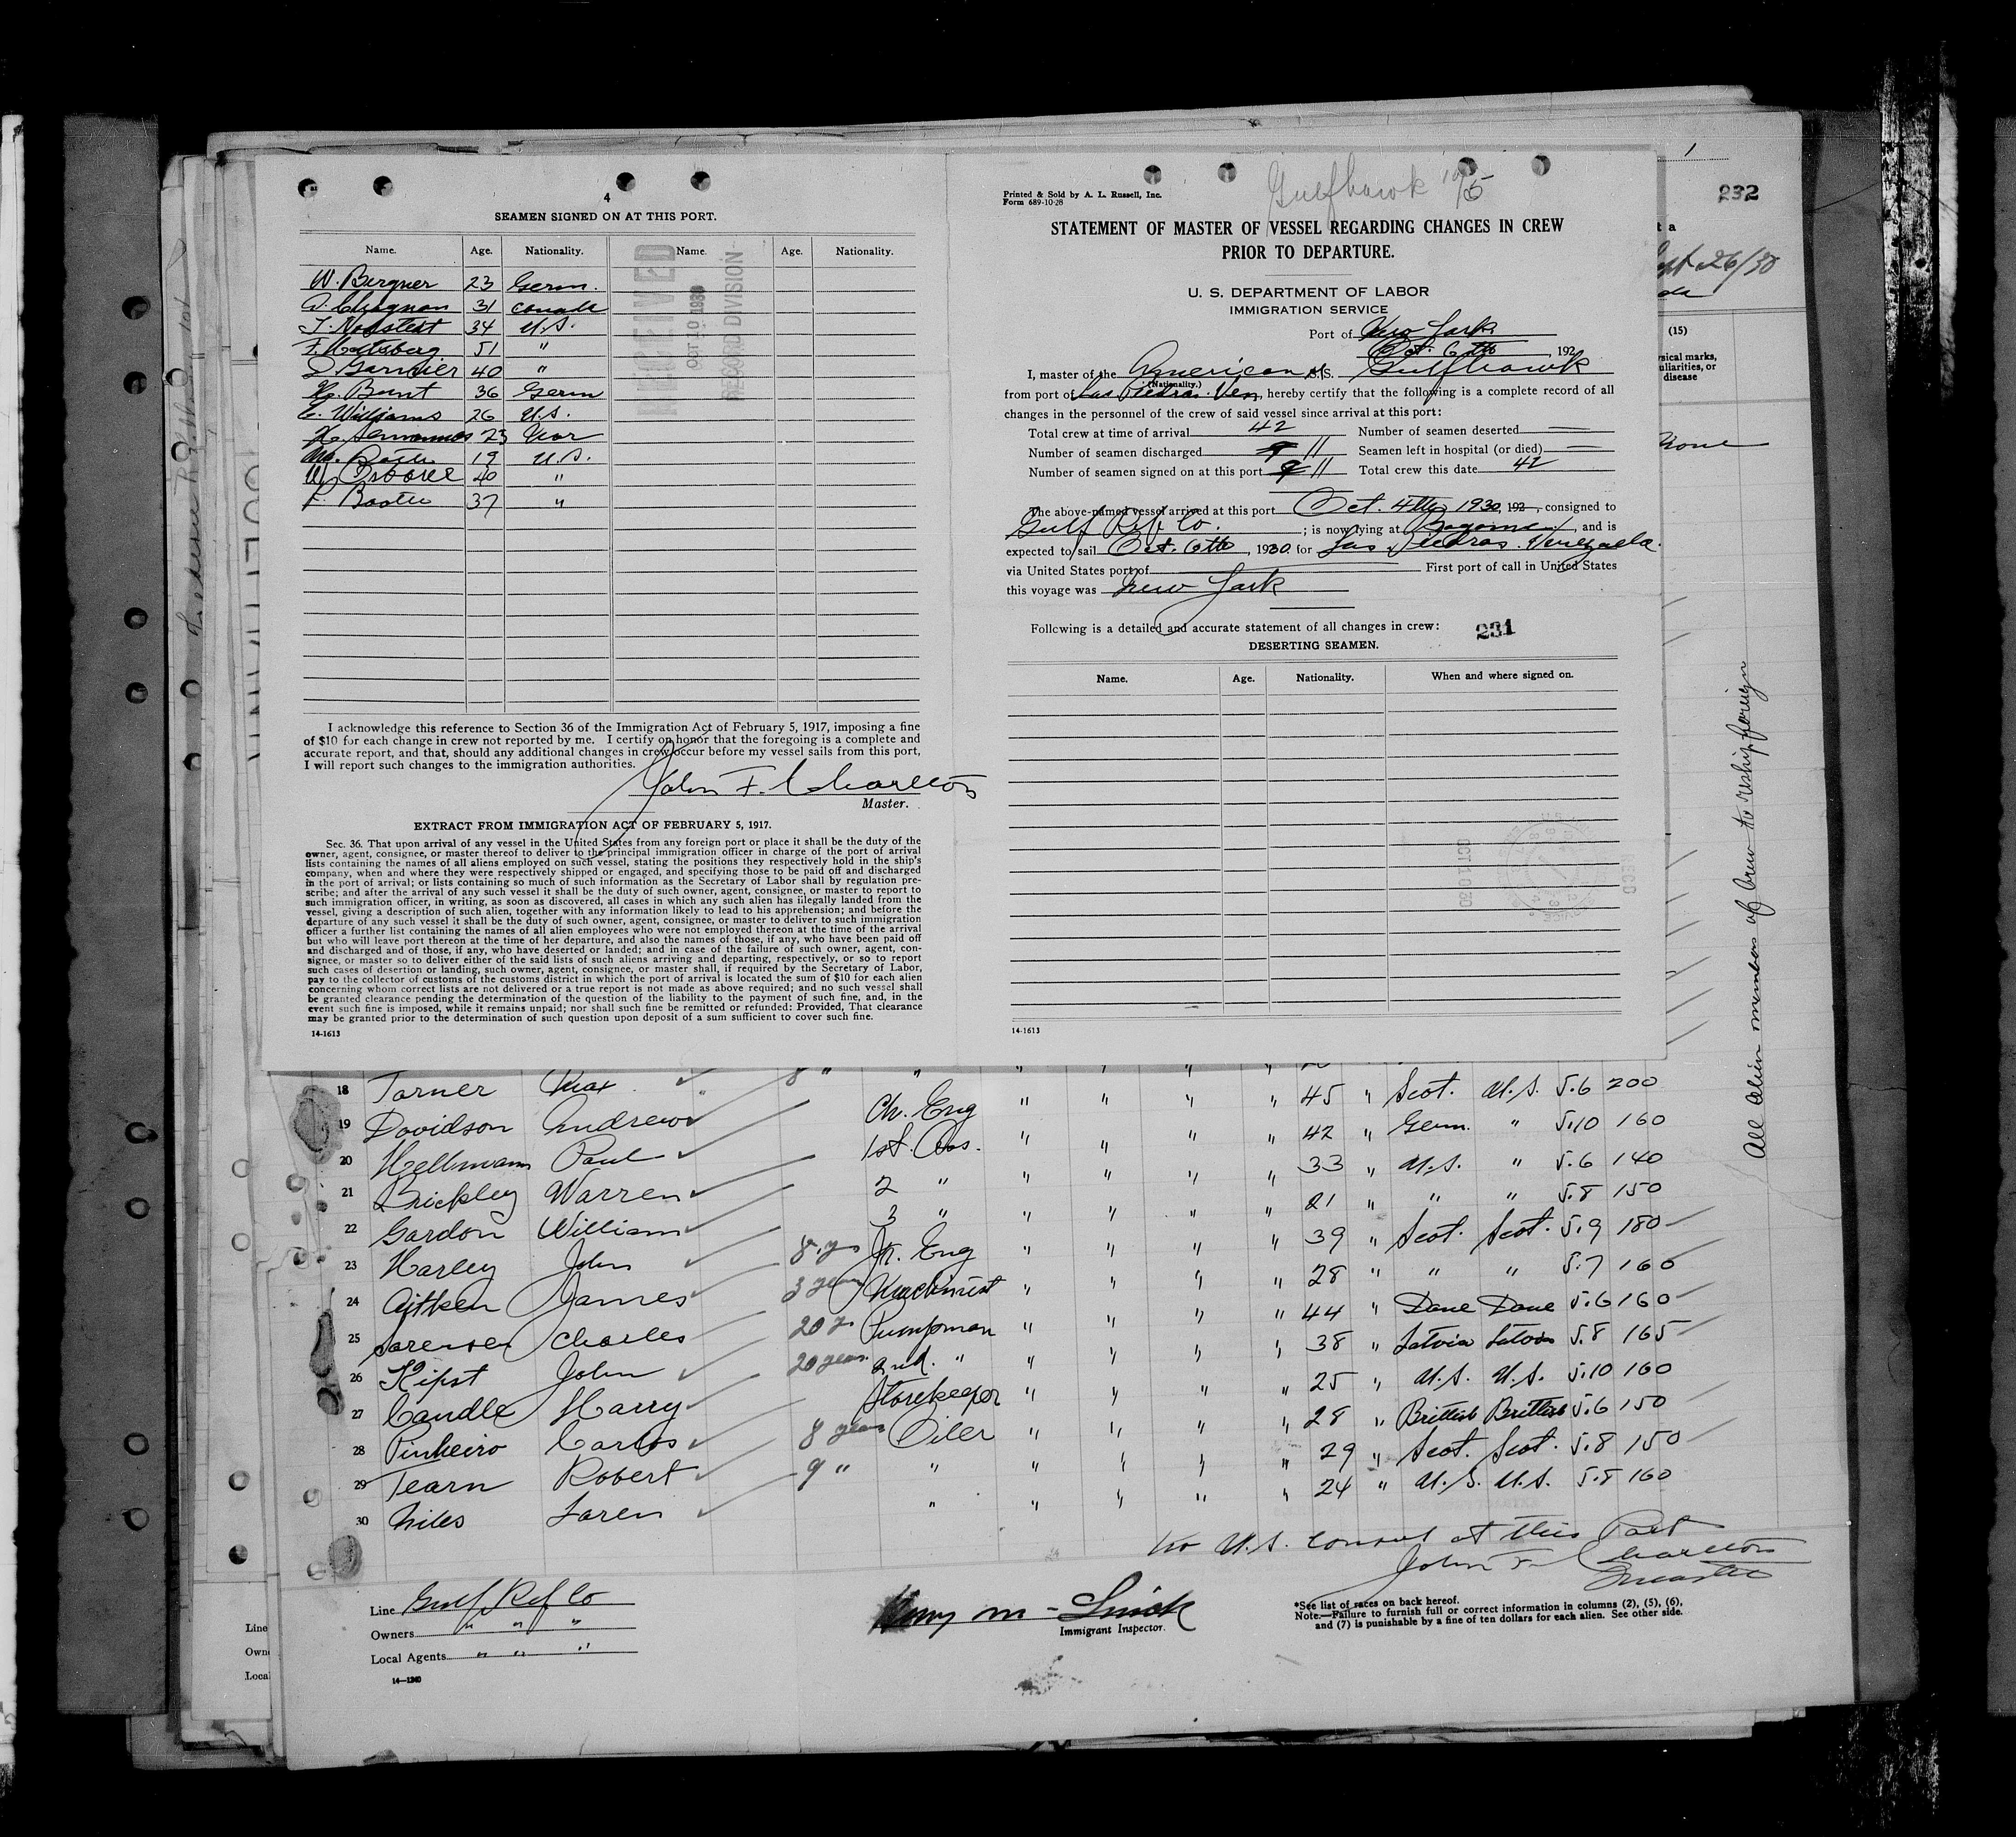 4
SEAMEN SIGNED ON AT THIS PORT.
Name. Age. Nationality. Name. Age. Nationality.
RECEIVED
OCT 10 1930
RECORD DIVISION
W. Bergner 23 Germ.
31
34 U.S.
51 "
40 "
36 Germ
C. Williams 26 U.S.
23 Nor
19 U.S.
40 "
37 "
I acknowledge this reference to Section 36 of the Immigration Act of February 5, 1917, imposing a fine
of $10 for each change in crew not reported by me. I certify on honor that the foregoing is a complete and
accurate report, and that, should any additional changes in crew occur before my vessel sails from this port,
I will report such changes to the immigration authorities.
John F. Charlton
Master.
EXTRACT FROM IMMIGRATION ACT OF FEBRUARY 5, 1917.
Sec. 36. That upon arrival of any vessel in the United States from any foreign port or place it shall be the duty of the
owner, agent, consignee, or master thereof to deliver to the principal immigration officer in charge of the port of arrival
lists containing the names of all aliens employed on such vessel, stating the positions they respectively hold in the ship's
company, when and where they were respectively shipped or engaged, and specifying those to be paid off and discharged
in the port of arrival; or lists containing so much of such information as the Secretary of Labor shall by regulation pre-
scribe; and after the arrival of any such vessel it shall be the duty of such owner, agent, consignee, or master to report to
such immigration officer, in writing, as soon as discovered, all cases in which any such alien has illegally landed from the
vessel, giving a description of such alien, together with any information likely to lead to his apprehension; and before the
departure of any such vessel it shall be the duty of such owner, agent, consignee, or master to deliver to such immigration
officer a further list containing the names of all alien employees who were not employed thereon at the time of the arrival
but who will leave port thereon at the time of her departure, and also the names of those, if any, who have been paid off
and discharged and of those, if any, who have deserted or landed; and in case of the failure of such owner, agent, con-
signee, or master so to deliver either of the said lists of such aliens arriving and departing, respectively, or so to report
such cases of desertion or landing, such owner, agent, consignee, or master shall, if required by the Secretary of Labor,
pay to the collector of customs of the customs district in which the port of arrival is located the sum of $10 for each alien
concerning whom correct lists are not delivered or a true report is not made as above required; and no such vessel shall
be granted clearance pending the determination of the question of the liability to the payment of such fine, and, in the
event such fine is imposed, while it remains unpaid; nor shall such fine be remitted or refunded: Provided, That clearance
may be granted prior to the determination of such question upon deposit of a sum sufficient to cover such fine.
14-1613
Gulfhawk 10/5
Printed & Sold by A. L. Russell, Inc.
Form 689-10-28
STATEMENT OF MASTER OF VESSEL REGARDING CHANGES IN CREW
PRIOR TO DEPARTURE.
U. S. DEPARTMENT OF LABOR
IMMIGRATION SERVICE
Port of New York
Oct. 6th, 192
I, master of the American S.S. Gulfhawk
(Nationality.)
from port of Las Piedras. Ven, hereby certify that the following is a complete record of all
changes in the personnel of the crew of said vessel since arrival at this port:
Total crew at time of arrival 42 Number of seamen deserted
Number of seamen discharged 11 Seamen left in hospital (or died)
Number of seamen signed on at this port 11 Total crew this date 42
The above-named vessel arrived at this port Oct. 4th 1930, 192 , consigned to
Gulf Ref Co. ; is now lying at Bayonne, and is
expected to sail Oct. 6th, 1930 for Las Piedras. Venezuela.
via United States port of First port of call in United States
this voyage was New York
Following is a detailed and accurate statement of all changes in crew: 231
DESERTING SEAMEN.
Name. Age. Nationality. When and where signed on.
14-1613
1
232
Sept 26/30
(15)
disease
None
All Alien members of crew to reship foreign
18 Torner Max 8 "
19 Davidson Andrew Ch. Eng " " " " 45 " Scot. U.S. 5.6 200
20 Hellmann Paul 1st. Ass. " " " " 42 " Germ. " 5.10 160
21 Brickley Warren 2 " " " " " 33 " U.S. " 5.6 140
22 Gordon William 3 " " " " " 21 " " " 5.8 150
23 Harley John 8. ys Jr. Eng " " " " 39 " Scot. Scot. 5.9 180
24 Aitken James 3 years Machinist " " " " 28 " " " 5.7 160
25 Sorensen Charles 20 ys Pumpman " " " " 44 " Dane Dane 5.6 160
26 Kipst John 20 years 2nd. " " " " " 38 " Latvia Latvia 5.8 165
27 Candle Harry Storekeeper " " " " 25 " U.S. U.S. 5.10 160
28 Pinheiro Carlos 8 years Oiler " " " " 28 " Brittish Brittish 5.6 150
29 Tearn Robert 9 " " " " " " 29 " Scot. Scot. 5.8 150
30 Niles Loren " " " " " 24 " U.S. U.S. 5.8 160
No U.S. Consul at this Port
John F. Charlton
Master
Line Gulf Ref Co
Owners " " "
Local Agents " " "
14-1240
Immigrant Inspector.
*See list of races on back hereof.
Note.—Failure to furnish full or correct information in columns (2), (5), (6),
and (7) is punishable by a fine of ten dollars for each alien. See other side.